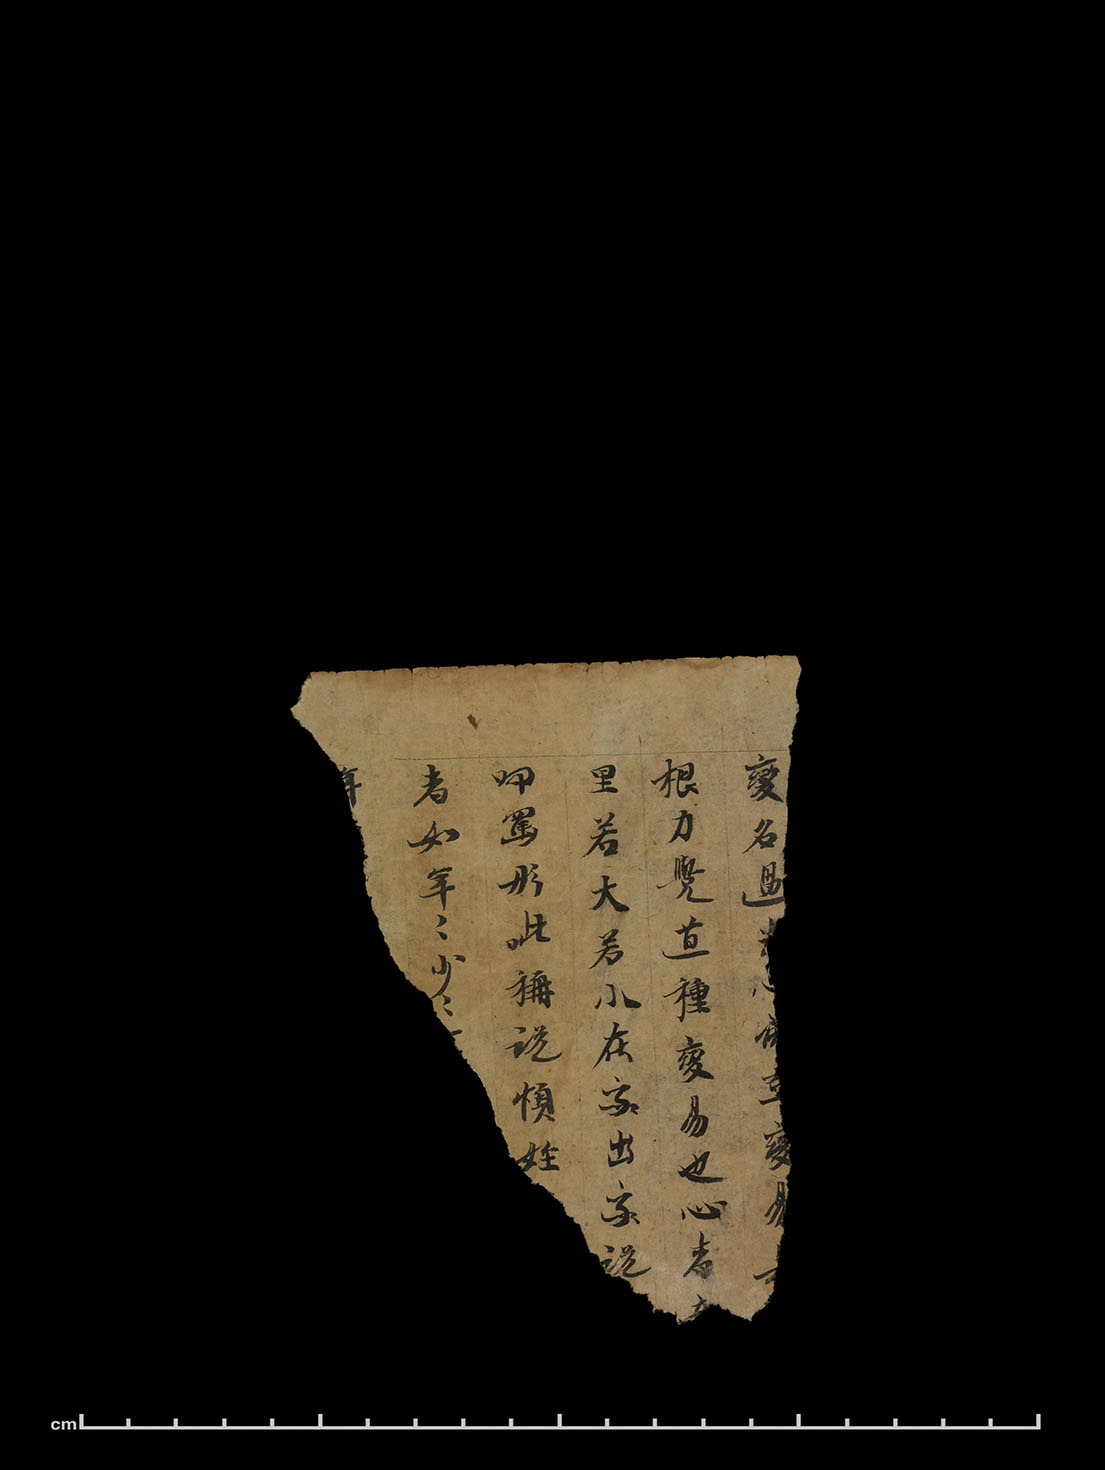 變名過去心憶至變易
根力覺道種變易也心者
里若大若小在家出家說
呷罵形呲稱說憤姓
者如年〻少〻
年
cm